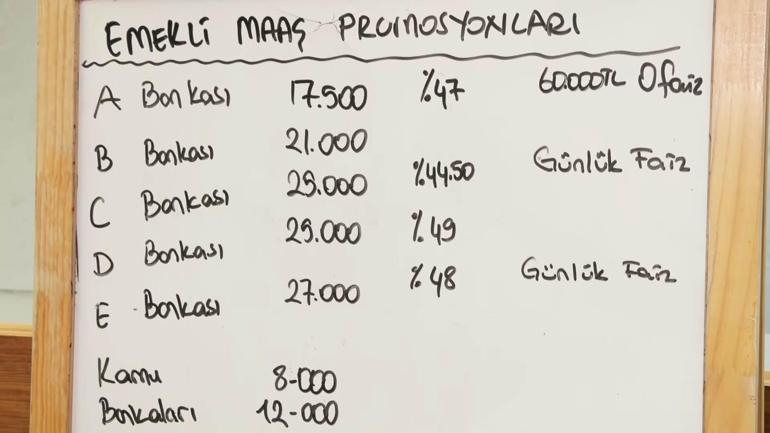 EMEKLİ MAAŞ PROMOSYONLARI
A Bankası 17.500 %47 60.000TL 0 faiz
B Bankası 21.000
C Bankası 25.000 %44.50 Günlük Faiz
D Bankası 25.000 %49
E Bankası 27.000 %48 Günlük Faiz
Kamu 8-000
Bankaları 12-000